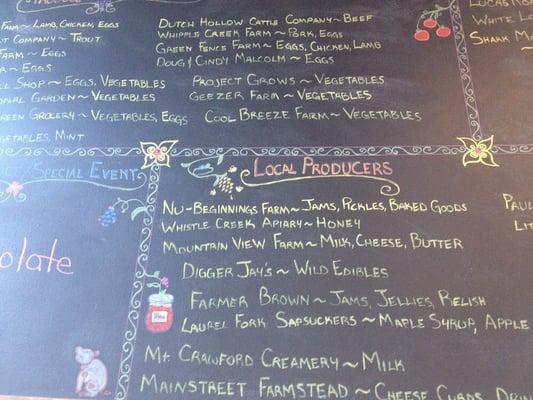 Farm ~ Lamb, Chicken, Eggs
Company ~ Trout
Farm ~ Eggs
~ Eggs
Shop ~ Eggs, Vegetables
Garden ~ Vegetables
Green Grocery ~ Vegetables, Eggs
Vegetables, Mint
Dutch Hollow Cattle Company ~ Beef
Whipple Creek Farm ~ Pork, Eggs
Green Fence Farm ~ Eggs, Chicken, Lamb
Doug & Cindy Malcolm ~ Eggs
Project Grows ~ Vegetables
Geezer Farm ~ Vegetables
Cool Breeze Farm ~ Vegetables
Lucas
White
Shark
/Special Event
olate
Local Producers
Nu-Beginnings Farm ~ Jams, Pickles, Baked Goods
Whistle Creek Apiary ~ Honey
Mountain View Farm ~ Milk, Cheese, Butter
Digger Jay's ~ Wild Edibles
Farmer Brown ~ Jams, Jellies, Relish
Laurel Fork Sapsuckers ~ Maple Syrup, Apple
Mt. Crawford Creamery ~ Milk
Mainstreet Farmstead ~ Cheese Curds, Drin
Paul